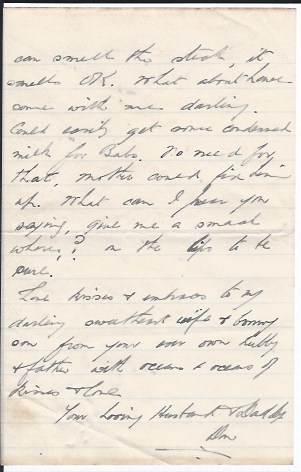 can smell the steak, it
smells OK. What about home
come with me darling.
Could easily get some condensed
milk for Babs. No need for
that, mother could fix him
up. What can I hear you
saying, give me a smack
where? on the lips to be
sure.
Love kisses & embraces to my
darling sweetheart wife & bonny
son from your ever own hubby
& father with oceans & oceans of
kisses & love
Your Loving Husband & Daddy
Don